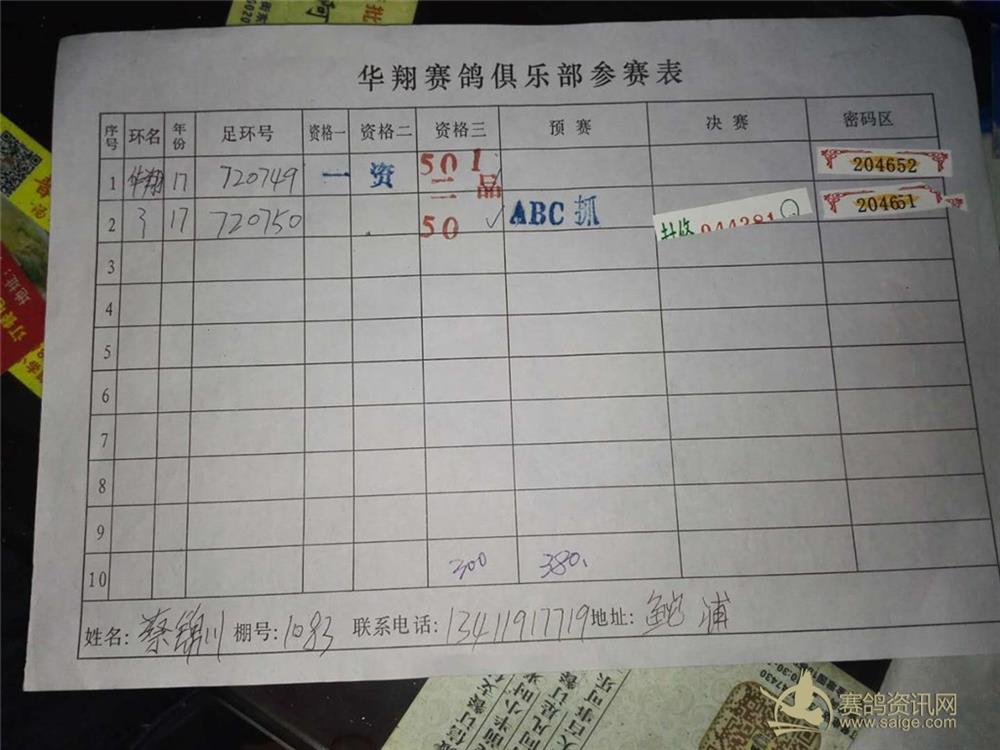 华翔赛鸽俱乐部参赛表
序号 环名 年份 足环号 资格一 资格二 资格三 预赛 决赛 密码区
1 华翔 17 720749 一 资 501 二品 204652
2 17 720750 50 ABC 抓 204651
3
4
5
6
7
8
9
10 300 380.
姓名: 蔡锦川 棚号: 1083 联系电话: 13411917719 地址: 鮀浦
赛鸽资讯网
www.saige.com